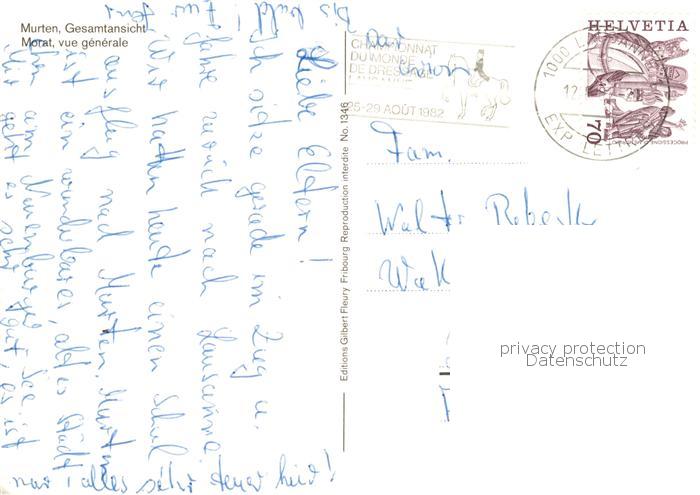 Murten, Gesamtansicht
Morat, vue générale
Liebe Eltern!
Ich sitze gerade im Zug u.
fahre zurück nach Lausanne.
Wir hatten heute einen Schul
ausflug nach Murten. Murten
ist ein wunderbares altes Städt
chen am Neuenburger See.
Mir geht es sehr gut, es ist
nur alles sehr teuer hier!
Bis bald!
Editions Gilbert Fleury Fribourg Reproduction interdite No. 1346
CHAMPIONNAT
DU MONDE
DE DRESSAGE
LAUSANNE
25-29 AOÛT 1982
1000 LAUSANNE
12
EXP LETTRES
HELVETIA
70
Fam.
Walter
privacy protection
Datenschutz